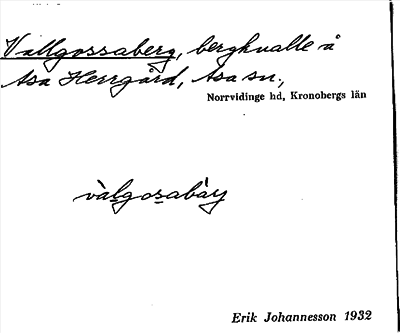 Vallgossaberg, bergknalle å
Asa Herrgård, Asa sn.,
Norrvidinge hd, Kronobergs län
vàlgosabày
Erik Johannesson 1932